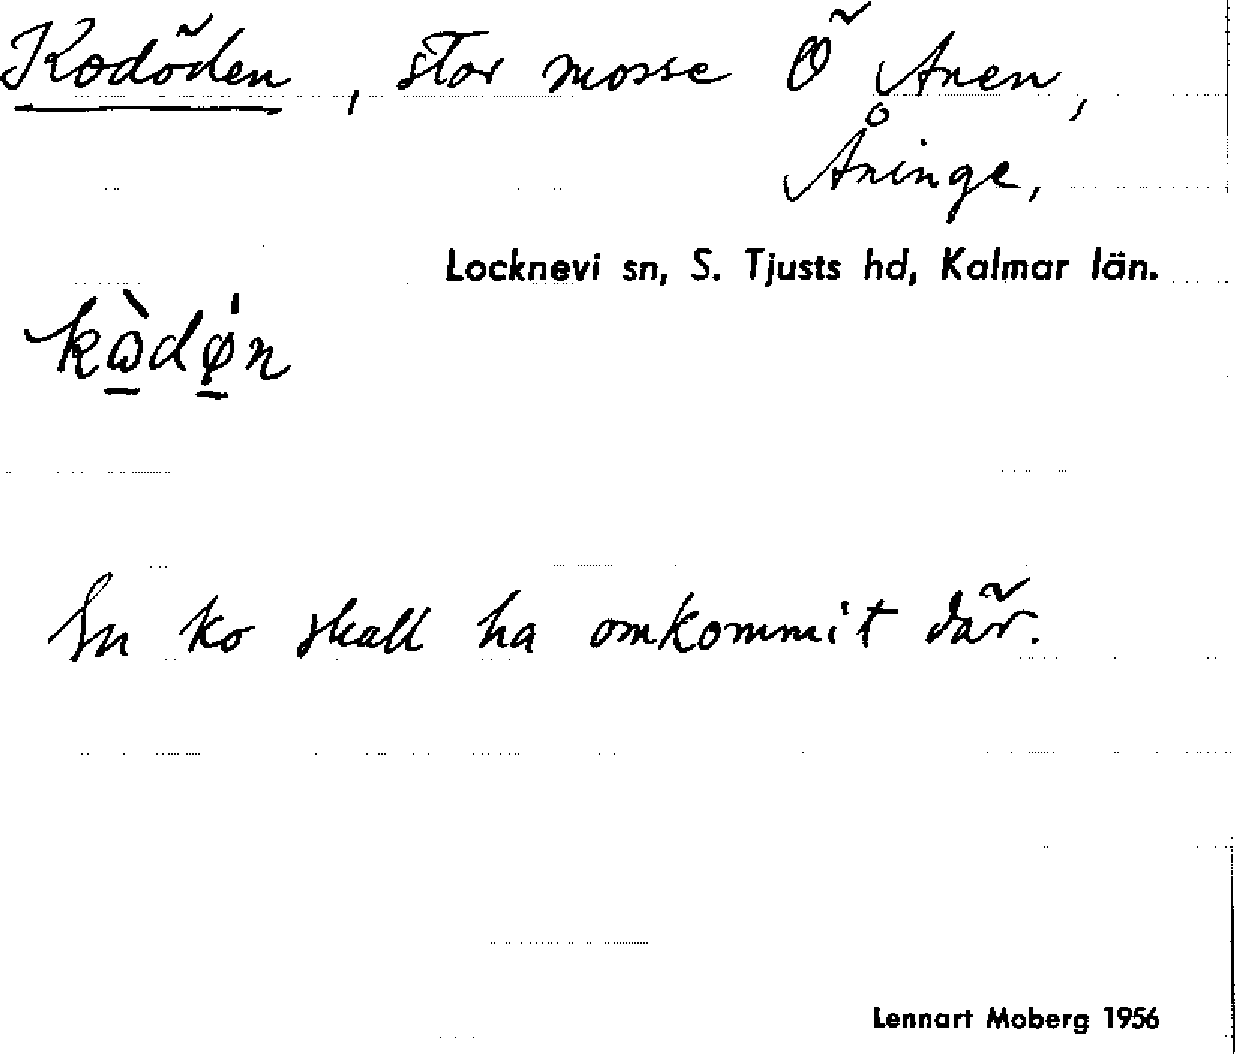 Kodöden, stor mosse Ö Anen,
Åninge,
Locknevi sn, S. Tjusts hd, Kalmar län.
kὼdǿn
En ko skall ha omkommit där.
Lennart Moberg 1956